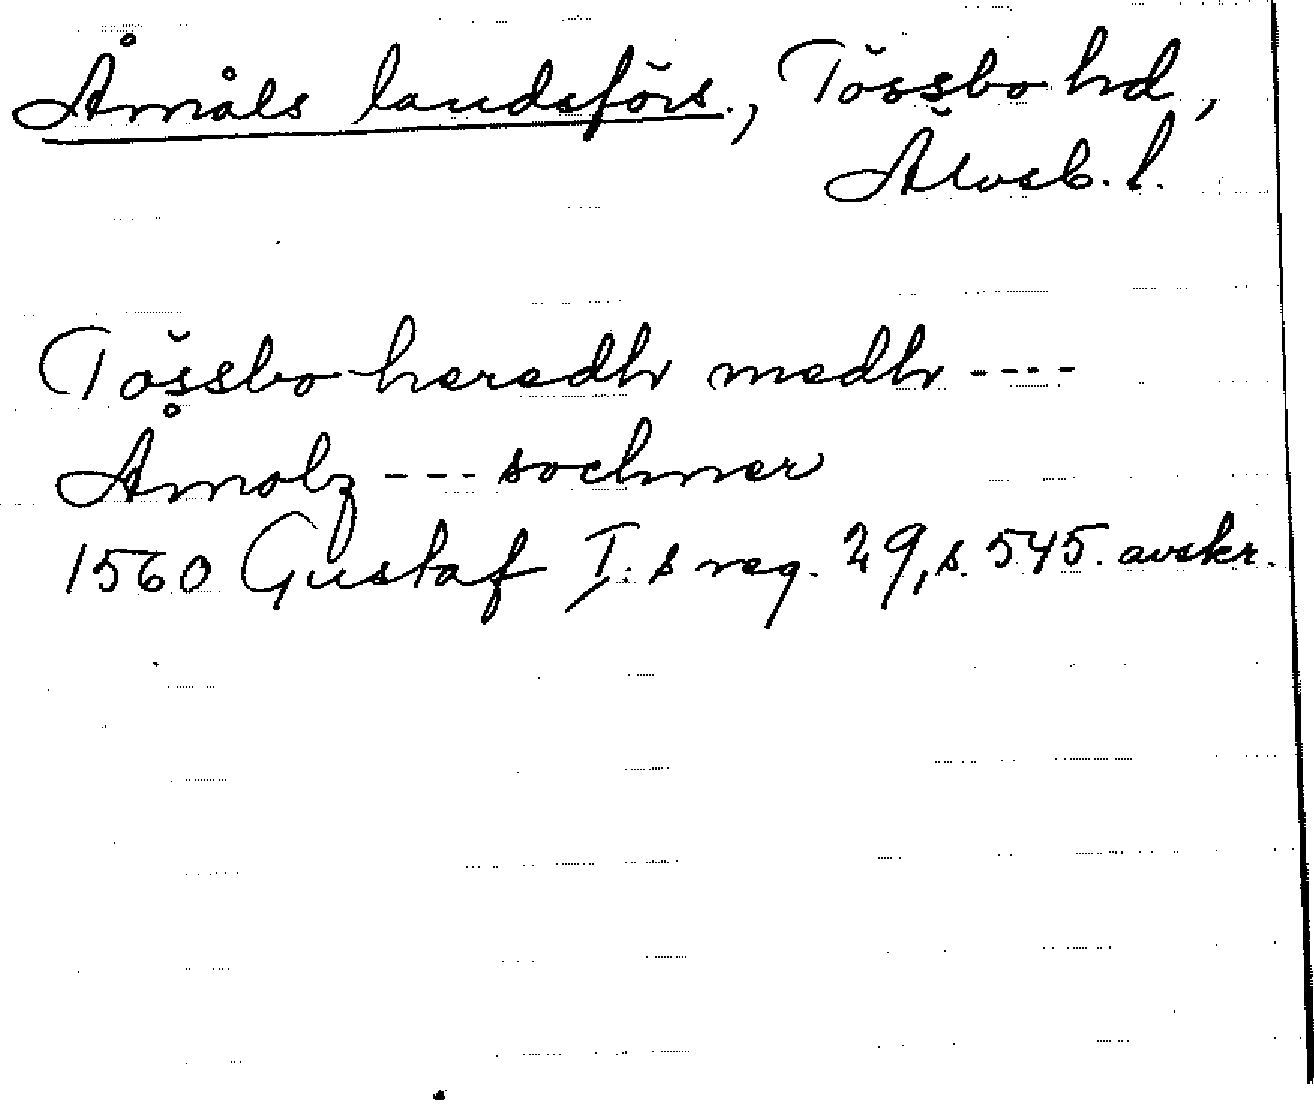 Åmåls landsförs., Tössbo hd,
Älvsb. l.
Tössbo heredh medh ----
Åmolz --- sochner
1560 Gustaf I.s reg. 29, s. 545. avskr.